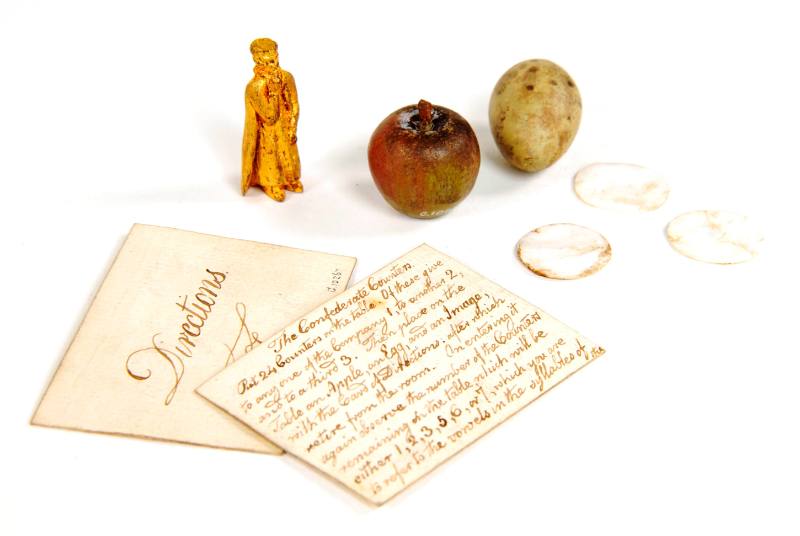 Directions.
The Confederate Counters.
Put 24 Counters on the table. Of these give
to any one of the company 1 to another 2,
and to a third 3. Then place on the
Table an Apple an Egg, and an Image,
with the Card of Directions, after which
retire from the room. On entering it
again observe the number of the Counters
remaining on the table, which will be
either 1, 2, 3, 5, 6, or 7, which you are
to refer to the vowels in the syllables of the